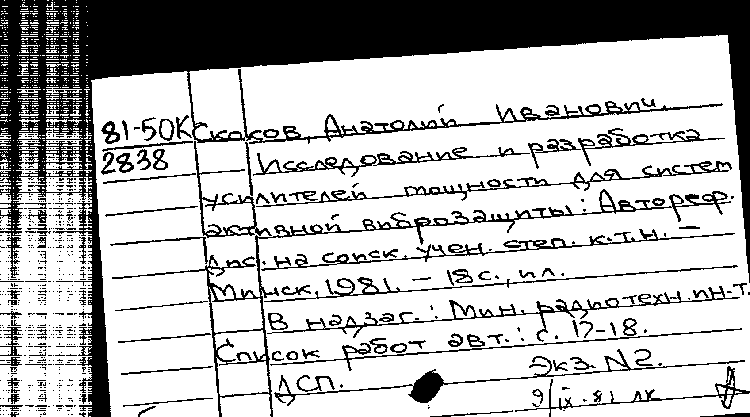 81-50К Скоков, Анатолий Иванович.
2838 Исследование и разработка
усилителей мощности для систем
активной виброзащиты: Автореф.
дис. на соиск. учен. степ. к.т.н. –
Минск, 1981. – 18 с., ил.
В надзаг.: Мин. радиотехн. ин-т.
Список работ авт.: с. 17-18.
Экз. N2.
ДСП.
9/IX-81 лк